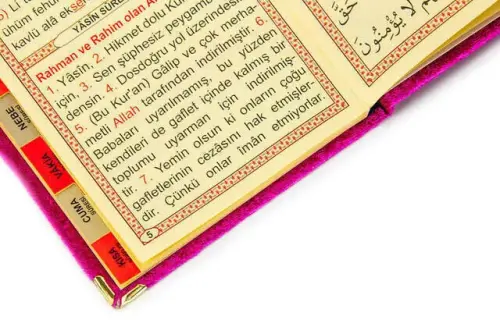 ühüm fehum
kavlü alâ ekse
YÂSÎN SÛRE
Rahman ve Rahim olan Al
1. Yâsîn. 2. Hikmet dolu Ku
için, 3. Sen şüphesiz peygamb
densin. 4. Dosdoğru yol üzerindesi
5. (Bu Kur'an) Gâlip ve çok merha-
metli Allah tarafından indirilmiştir. 6.
Babaları uyarılmamış, bu yüzden
kendileri de gaflet içinde kalmış bir
toplumu uyarman için indirilmiş-
tir. 7. Yemin olsun ki onların çoğu
gafletlerinin cezâsını hak etmişler-
dir. Çünkü onlar îmân etmiyorlar.
5
NEBE
VÂKIA
CUMA
SÛRESİ
KISA
لَا يُؤْمِنُونَ